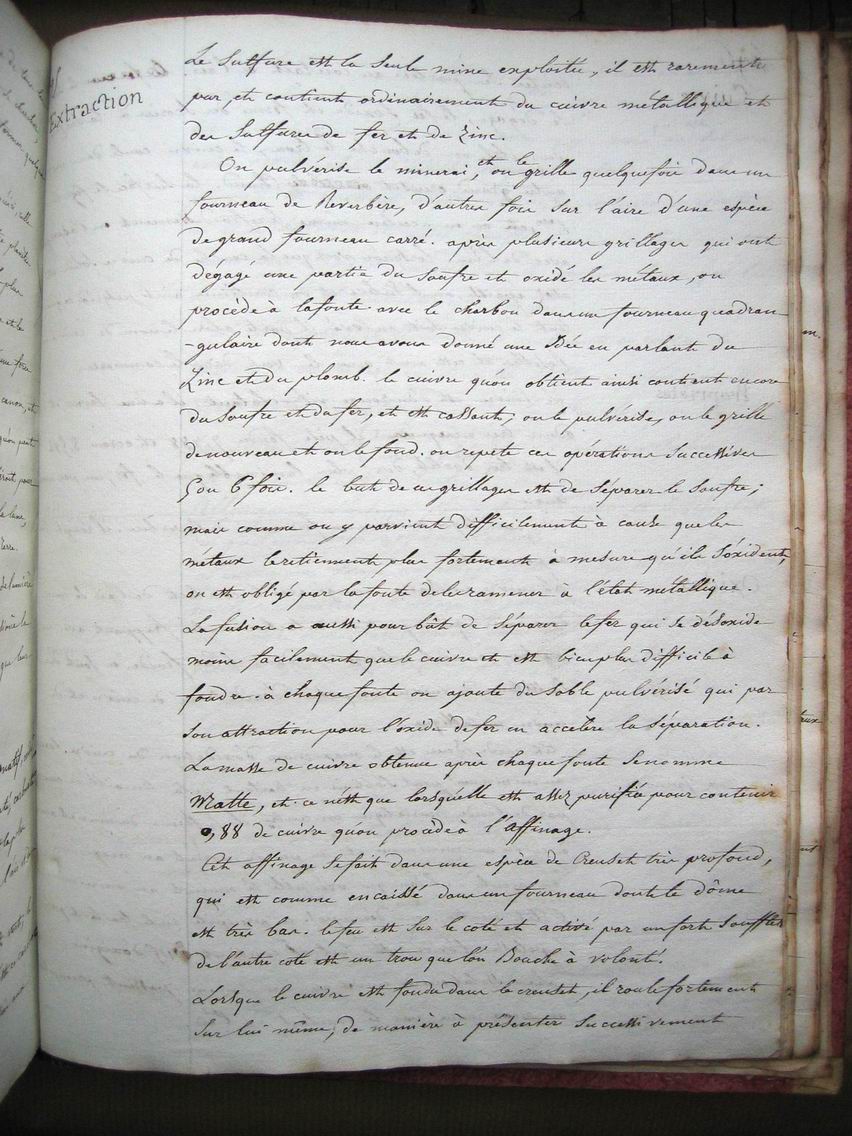 Extraction
Le Sulfure est la Seule mine exploitée, il est rarement
pur, et contient ordinairement du cuivre métallique et
des Sulfures de fer et de Zinc.
On pulvérise le minerai, et on le grille quelquefois dans un
fourneau de Reverbère, d'autres fois Sur l'aire d'une espèce
de grand fourneau carré. après plusieurs grillages qui ont
dégagé une partie du Soufre et oxidé les métaux, on
procède à la fonte avec le charbon dans un fourneau quadran
-gulaire dont nous avons donné une Idée en parlant du
Zinc et du plomb. le cuivre qu'on obtient ainsi contient encore
du Soufre et du fer, et est cassant, on le pulvérise, on le grille
de nouveau et on le fond. on repete ces opérations Successives
5 ou 6 fois. le but de ces grillages est de Séparer le Soufre;
mais comme on y parvient difficilement à cause que les
métaux le retiennent plus fortement à mesure qu'ils S'oxident,
on est obligé par la fonte de les ramener à l'état métallique.
La fusion a aussi pour bût de Séparer le fer qui se désoxide
moins facilement que le cuivre et est bien plus difficile à
fondre. à chaque fonte on ajoute du Sable pulvérisé qui par
Son attraction pour l'oxide de fer en accélère la Séparation.
La masse de cuivre obtenue après chaque fonte Se nomme
Matte, et ce n'est que lorsqu'elle est assez purifiée pour contenir
0,88 de cuivre qu'on procède à l'Affinage.
Cet affinage Se fait dans une espèce de Creuset très profond,
qui est comme encaissé dans un fourneau dont le dôme
est très bas. le feu est Sur le coté et activé par un fort Soufflet
de l'autre coté est un trou que l'on Bouche à volonté.
Lorsque le cuivre est fondu dans le creuset, il roule fortement
Sur lui même, de manière à présenter Successivement